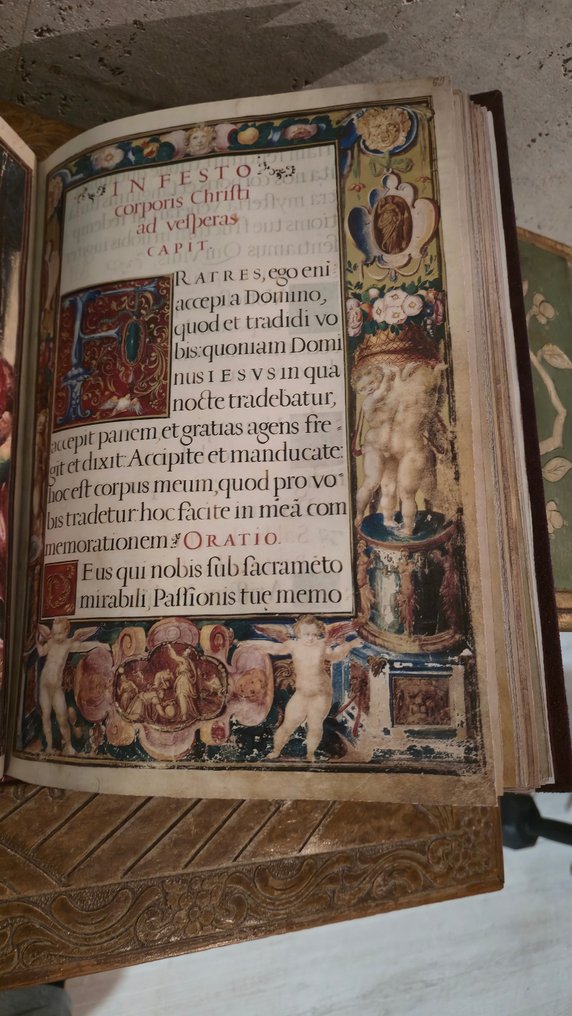 IN FESTO
corporis Christi
ad vesperas
CAPIT.
FRATRES, ego eni
accepi a Domino,
quod et tradidi vo
bis: quoniam Domi
nus IESVS in qua
nocte tradebatur,
accepit panem, et gratias agens fre-
git et dixit: Accipite et manducate:
hoc est corpus meum, quod pro vo-
bis tradetur: hoc facite in meã com
memorationem. ORATIO.
DEus qui nobis sub sacrameto
mirabili, Passionis tue memo